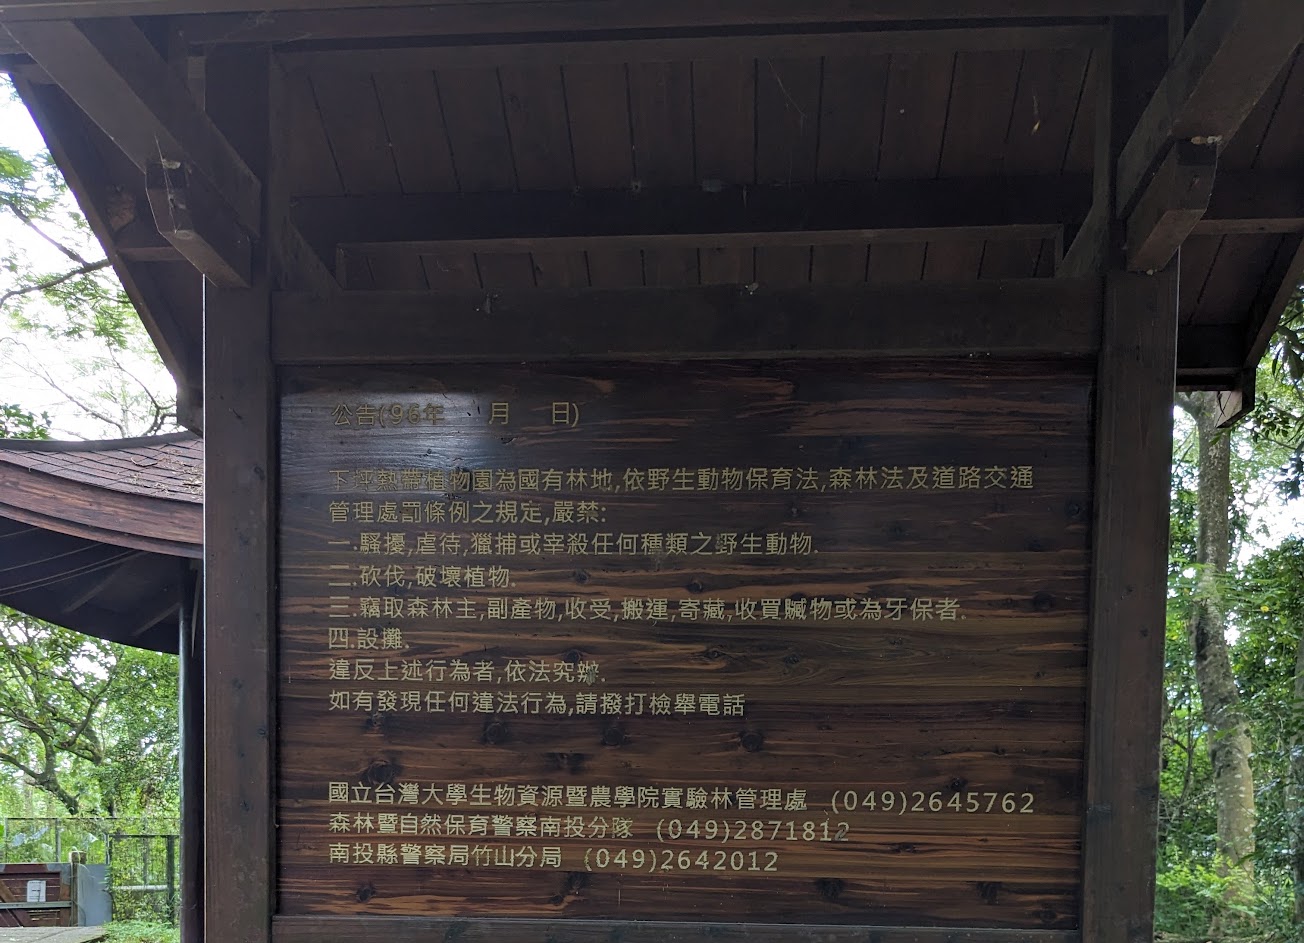 公告(96年 月 日)
下坪熱帶植物園為國有林地,依野生動物保育法,森林法及道路交通
管理處罰條例之規定,嚴禁:
一.騷擾,虐待,獵捕或宰殺任何種類之野生動物.
二.砍伐,破壞植物.
三.竊取森林主,副產物,收受,搬運,寄藏,收買贓物或為牙保者.
四.設攤.
違反上述行為者,依法究辦.
如有發現任何違法行為,請撥打檢舉電話
國立台灣大學生物資源暨農學院實驗林管理處 (049)2645762
森林暨自然保育警察南投分隊 (049)2871812
南投縣警察局竹山分局 (049)2642012